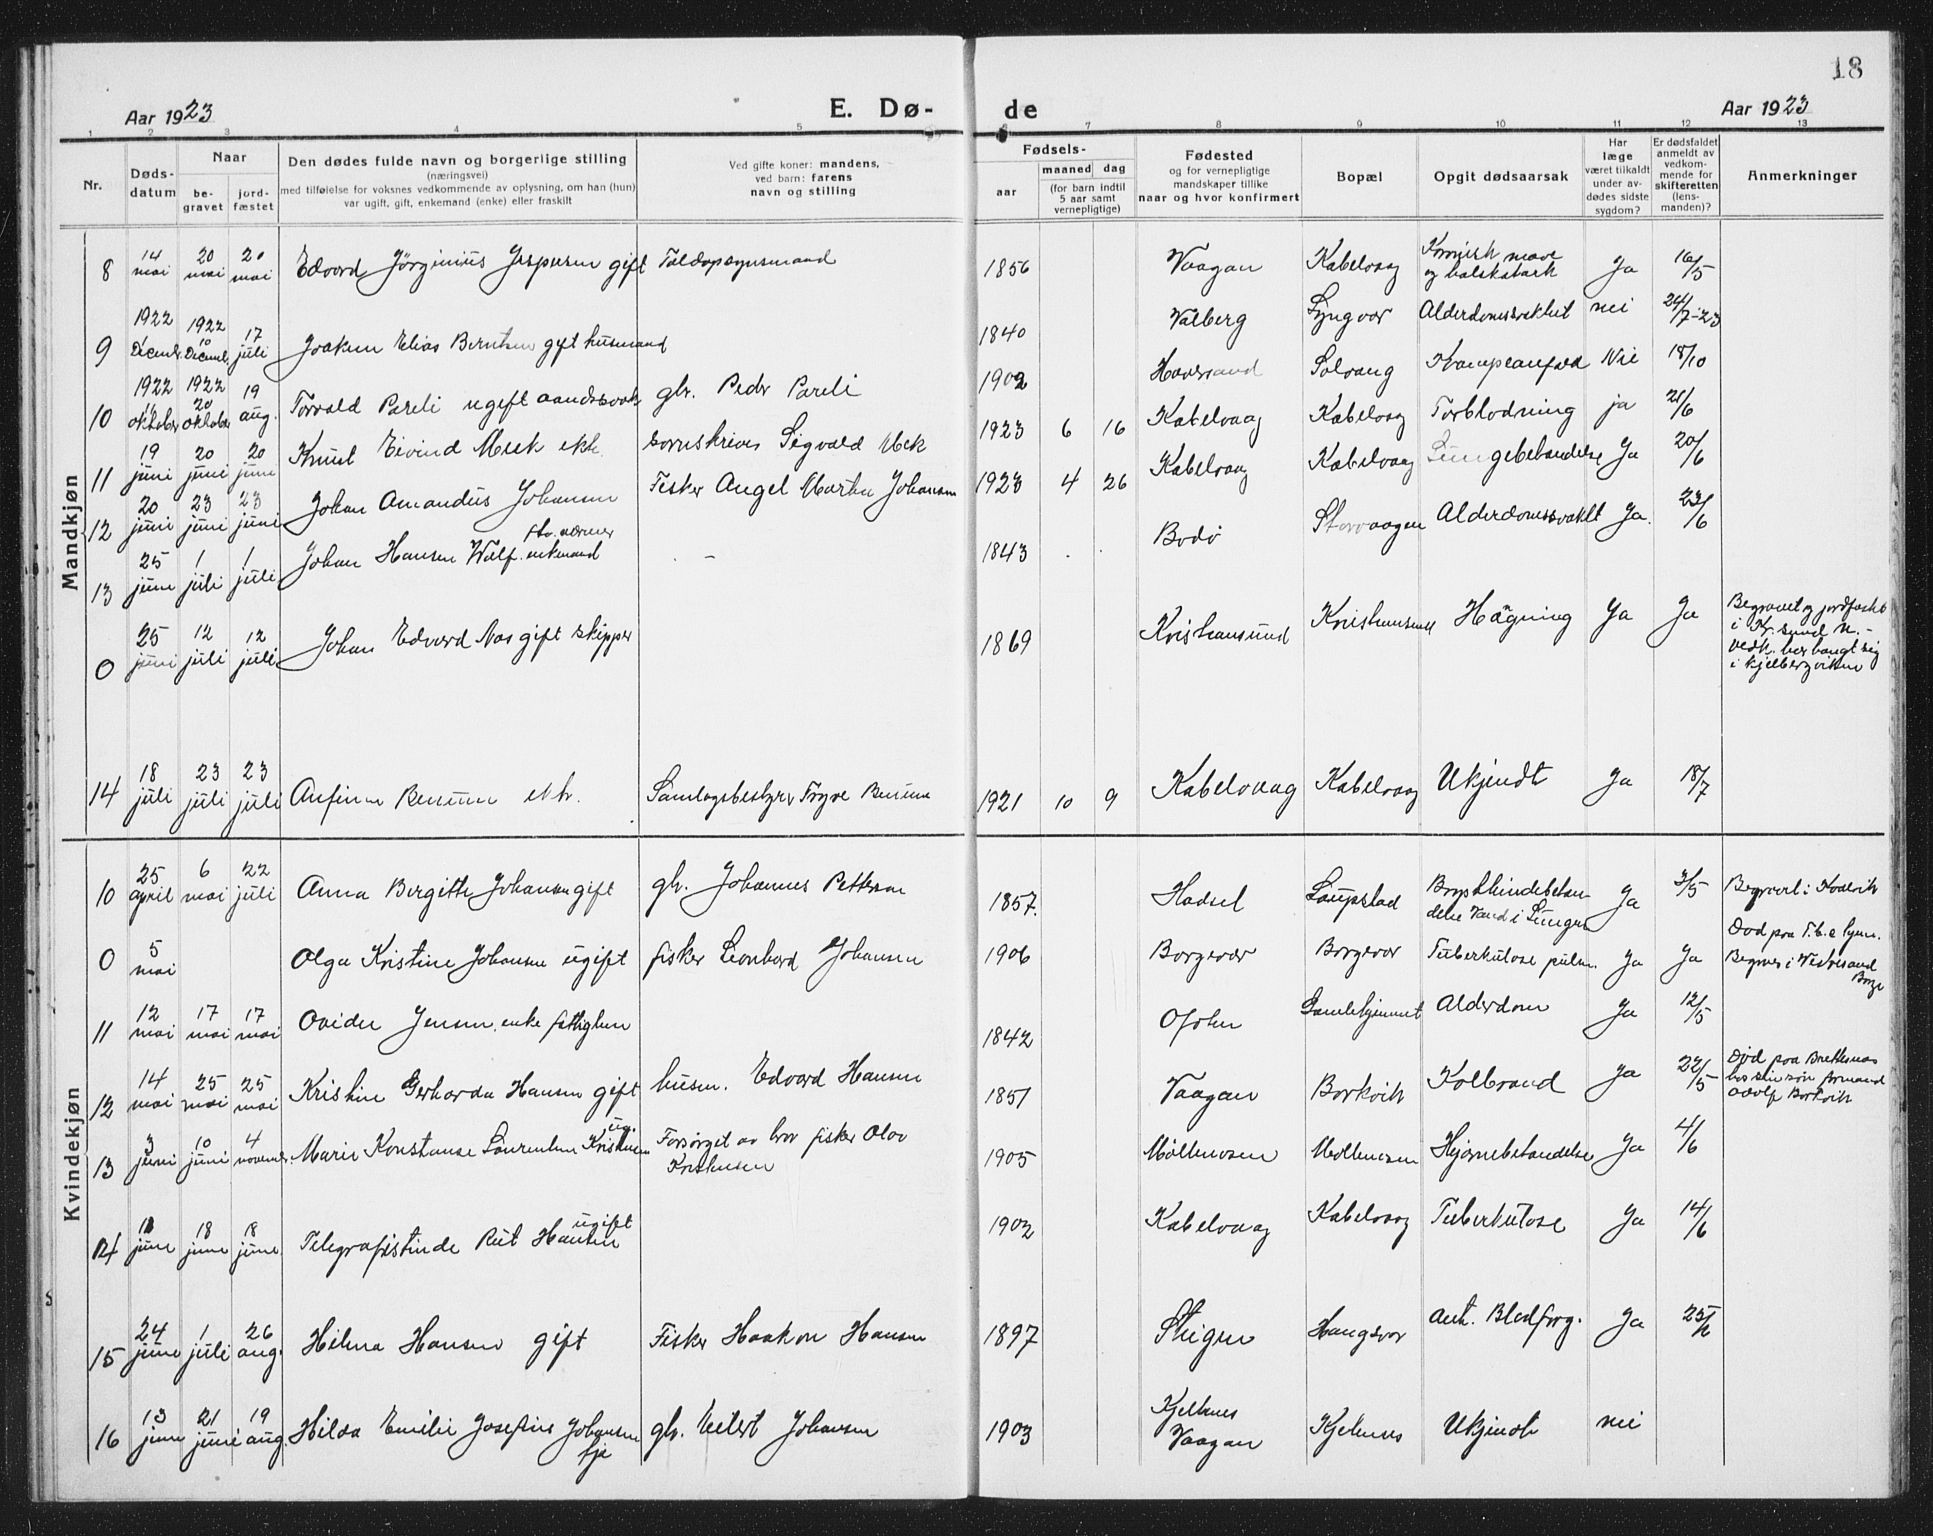 18
Aar 1923 E. Dø- de Aar 1923
1 2 3 4 5 6 7 8 9 10 11 12 13
Nr.
Døds-
datum
Naar
be-
gravet
jord-
fæstet
Den dødes fulde navn og borgerlige stilling
(næringsvei)
med tilføielse for voksnes vedkommende av oplysning, om han (hun)
var ugift, gift, enkemand (enke) eller fraskilt
Ved gifte koner: mandens,
ved barn: farens
navn og stilling
Fødsels-
aar
maaned dag
(for barn indtil
5 aar samt
vernepligtige)
Fødested
og for vernepligtige
mandskaper tillike
naar og hvor konfirmert
Bopæl
Opgit dødsaarsak
Har
læge
været tilkaldt
under av-
dødes sidste
sygdom?
Er dødsfaldet
anmeldt av
vedkom-
mende for
skifteretten
(lens-
manden)?
Anmerkninger
Mandkjøn
8 14 mai 20 mai 20 mai Edvard Jørginius Jespersen gift Toldopsynsmand 1856 Vaagan Kabelvaag Kronisk mave
og halskatarh Ja 16/5
9 1922 1 Decembr. 1922 10 Decembr. 17 juli Joakim Elias Berntsen gift husmand 1840 Valberg Lyngvær Alderdomssvakhet nei 24/7-23
10 1922 oktober 1922 20 oktober 19 aug. Torvald Pareli ugift aandssvak gbr. Peder Pareli 1902 Haversand Solvang Krampeanfald Nei 18/10
11 19 juni 20 juni 20 juni Knut Eivind Meek ekte. Sigvald Meek 1923 6 16 Kabelvaag Kabelvaag Forblødning ja 21/6
12 20 juni 23 juni 23 juni Johan Amandus Johansen Fisker Angel Martin Johansen 1923 4 26 Kabelvaag Kabelvaag Lungebetændelse Ja 20/6
13 25 juni 1 juli 1 juli Johan Hansen Wulf. enkemand - 1843 Bodø Storvaagen Alderdomssvakht Ja. 23/6
0 25 juni 12 juli 12 juli Johan Edvard Nos gift skipper 1869 Kristiansund Kristiansund Hængning Ja Ja Begravet og jordfæstet
i Kr.sund N.-
vedk. har hængt sig
i Kjelbergviken
14 18 juli 23 juli 23 juli Anfinn Benum ekte. Samlagsbestyrer Trygve Benum 1921 10 9 Kabelvaag Kabelvaag Ukjendt Ja 18/7
Kvindekjøn
10 25 april 6 mai 22 juli Anna Bergitte Johansen gift gbr. Johannes Pettersen 1857. Hadsel Laupstad Brysthindebetæn-
delse Vand i Lungen Ja 3/5 Begravet i
0 5 mai Olga Kristine Johansen ugift fisker Leonhard Johansen 1906 Borgevær Borgevær Tuberkulose pulm. Ja Ja Død paa T.b.c
Begraves i Vestresand
Borge
11 12 mai 17 mai 17 mai Ovidie Jensen, enke fattiglem 1842 Ofoten Gamlehjemmet Alderdom Ja 12/5
12 14 mai 25 mai 25 mai Kristine Gerharda Hansen gift husm. Edvard Hansen 1851 Vaagan Borkvik Koldbrand Ja 22/5 Død paa Brettesnes
hos sin søn formand
Adolf Borkvik
13 3 juni 10 juni 4 novembr. Marie Konstanse Laurentine Kristensen ug. Forsørget av bror fisker Olav
Kristensen 1905 Møllenosen Møllenosen Hjernebetændelse Ja 4/6
14 juni 18 juni 18 juni Telegrafistinde Rut Hansen ugift 1902 Kabelvaag Kabelvaag Tuberkulose Ja 14/6
15 24 juni 1 juli 26 aug. Helena Hansen gift Fisker Haakon Hansen 1897 Steigen Hangsvær Ant. Blodforg. Ja 25/6
16 13 juni 21 juni 19 aug. Hilda Emilie Josefine Johansen
pje gbr. Eilert Johansen 1903 Kjelnes
Vaagan Kjelnes Ukjendt nei